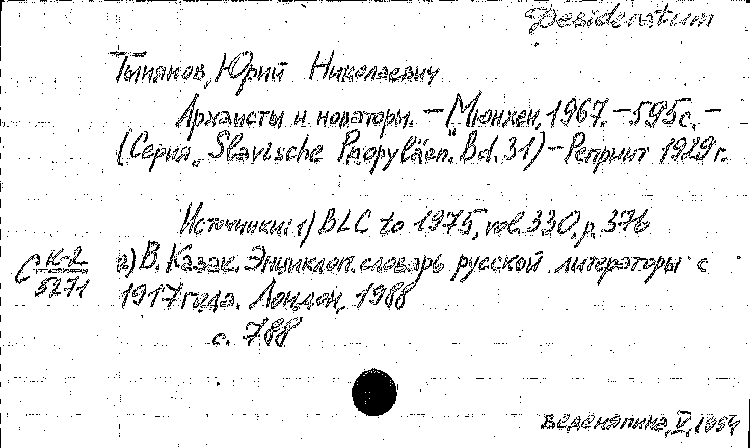 Desideratum
Тынянов, Юрий Николаевич
Архаисты и новаторы. — Мюнхен, 1967. — 595 с. —
(Серия „Slavische Propyläen". Bd. 31) — Репринт 1929 г.
Источники: 1) BLC to 1975, vol. 330, p. 376
С К-2/5271
2) В. Казак. Энциклоп. словарь русской литературы с
1917 года. Лондон, 1988
с. 788
Веденяпина, V, 1994